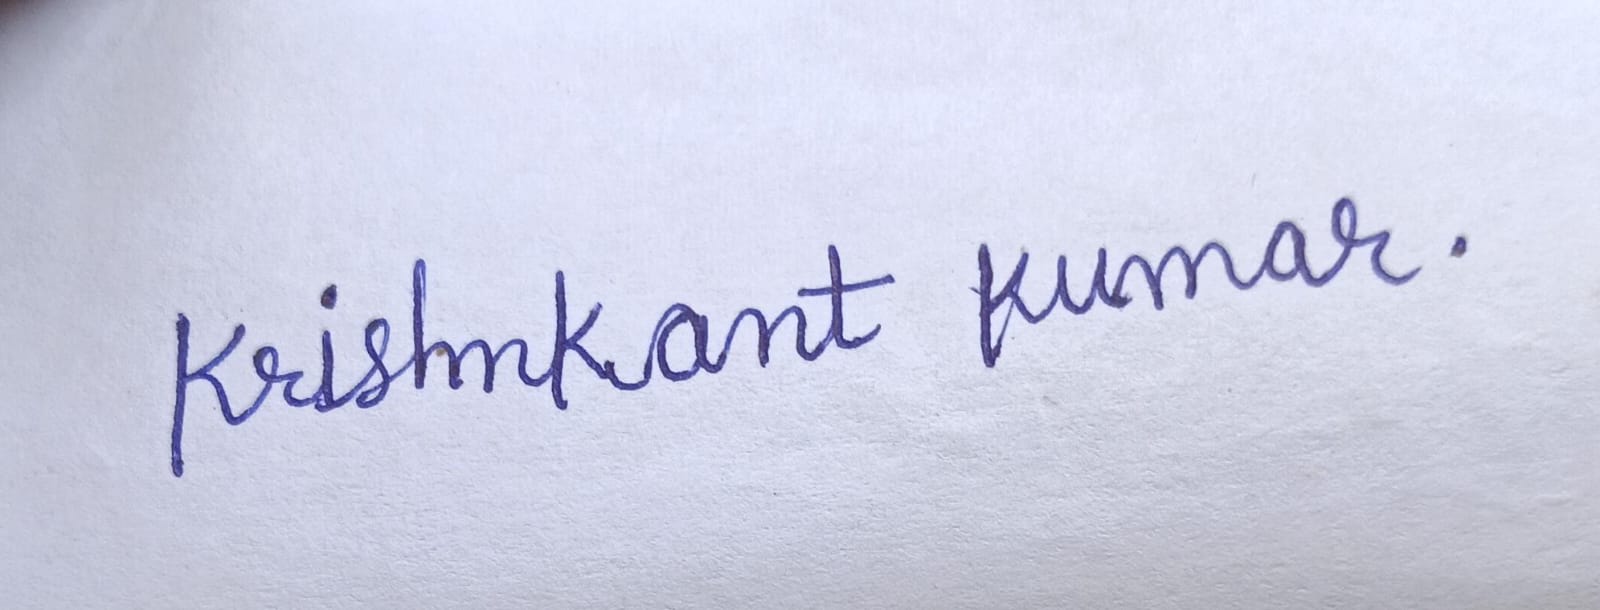 Krishnkant Kumar.